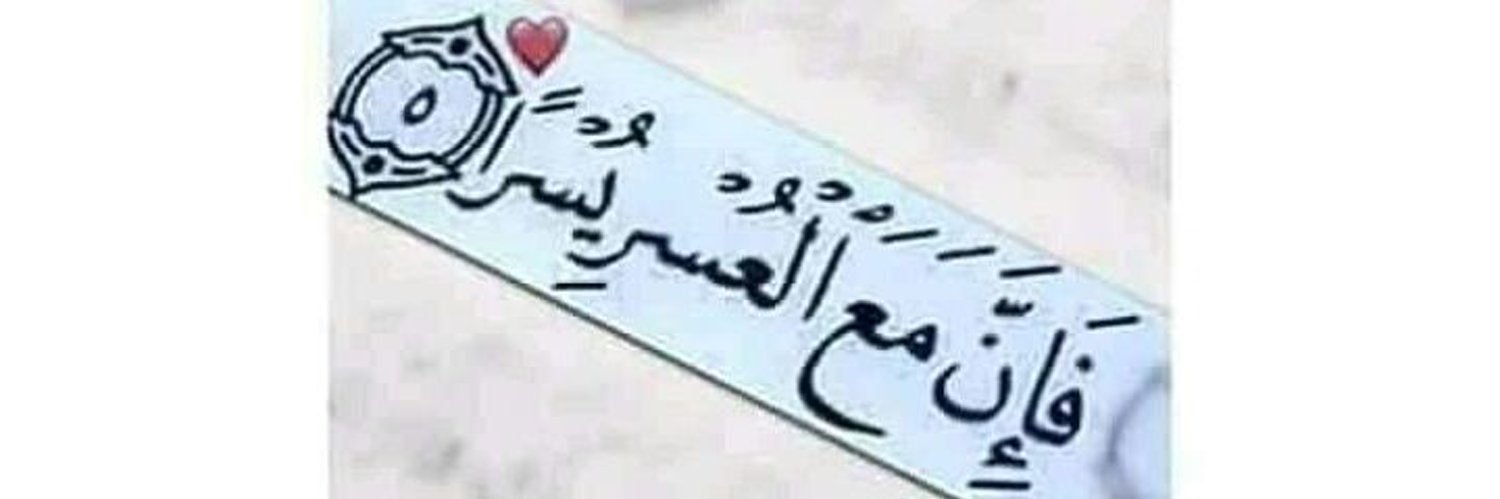 فَإِنَّ مَعَ ٱلْعُسْرِ يُسْرًا ۝٥ ❤️